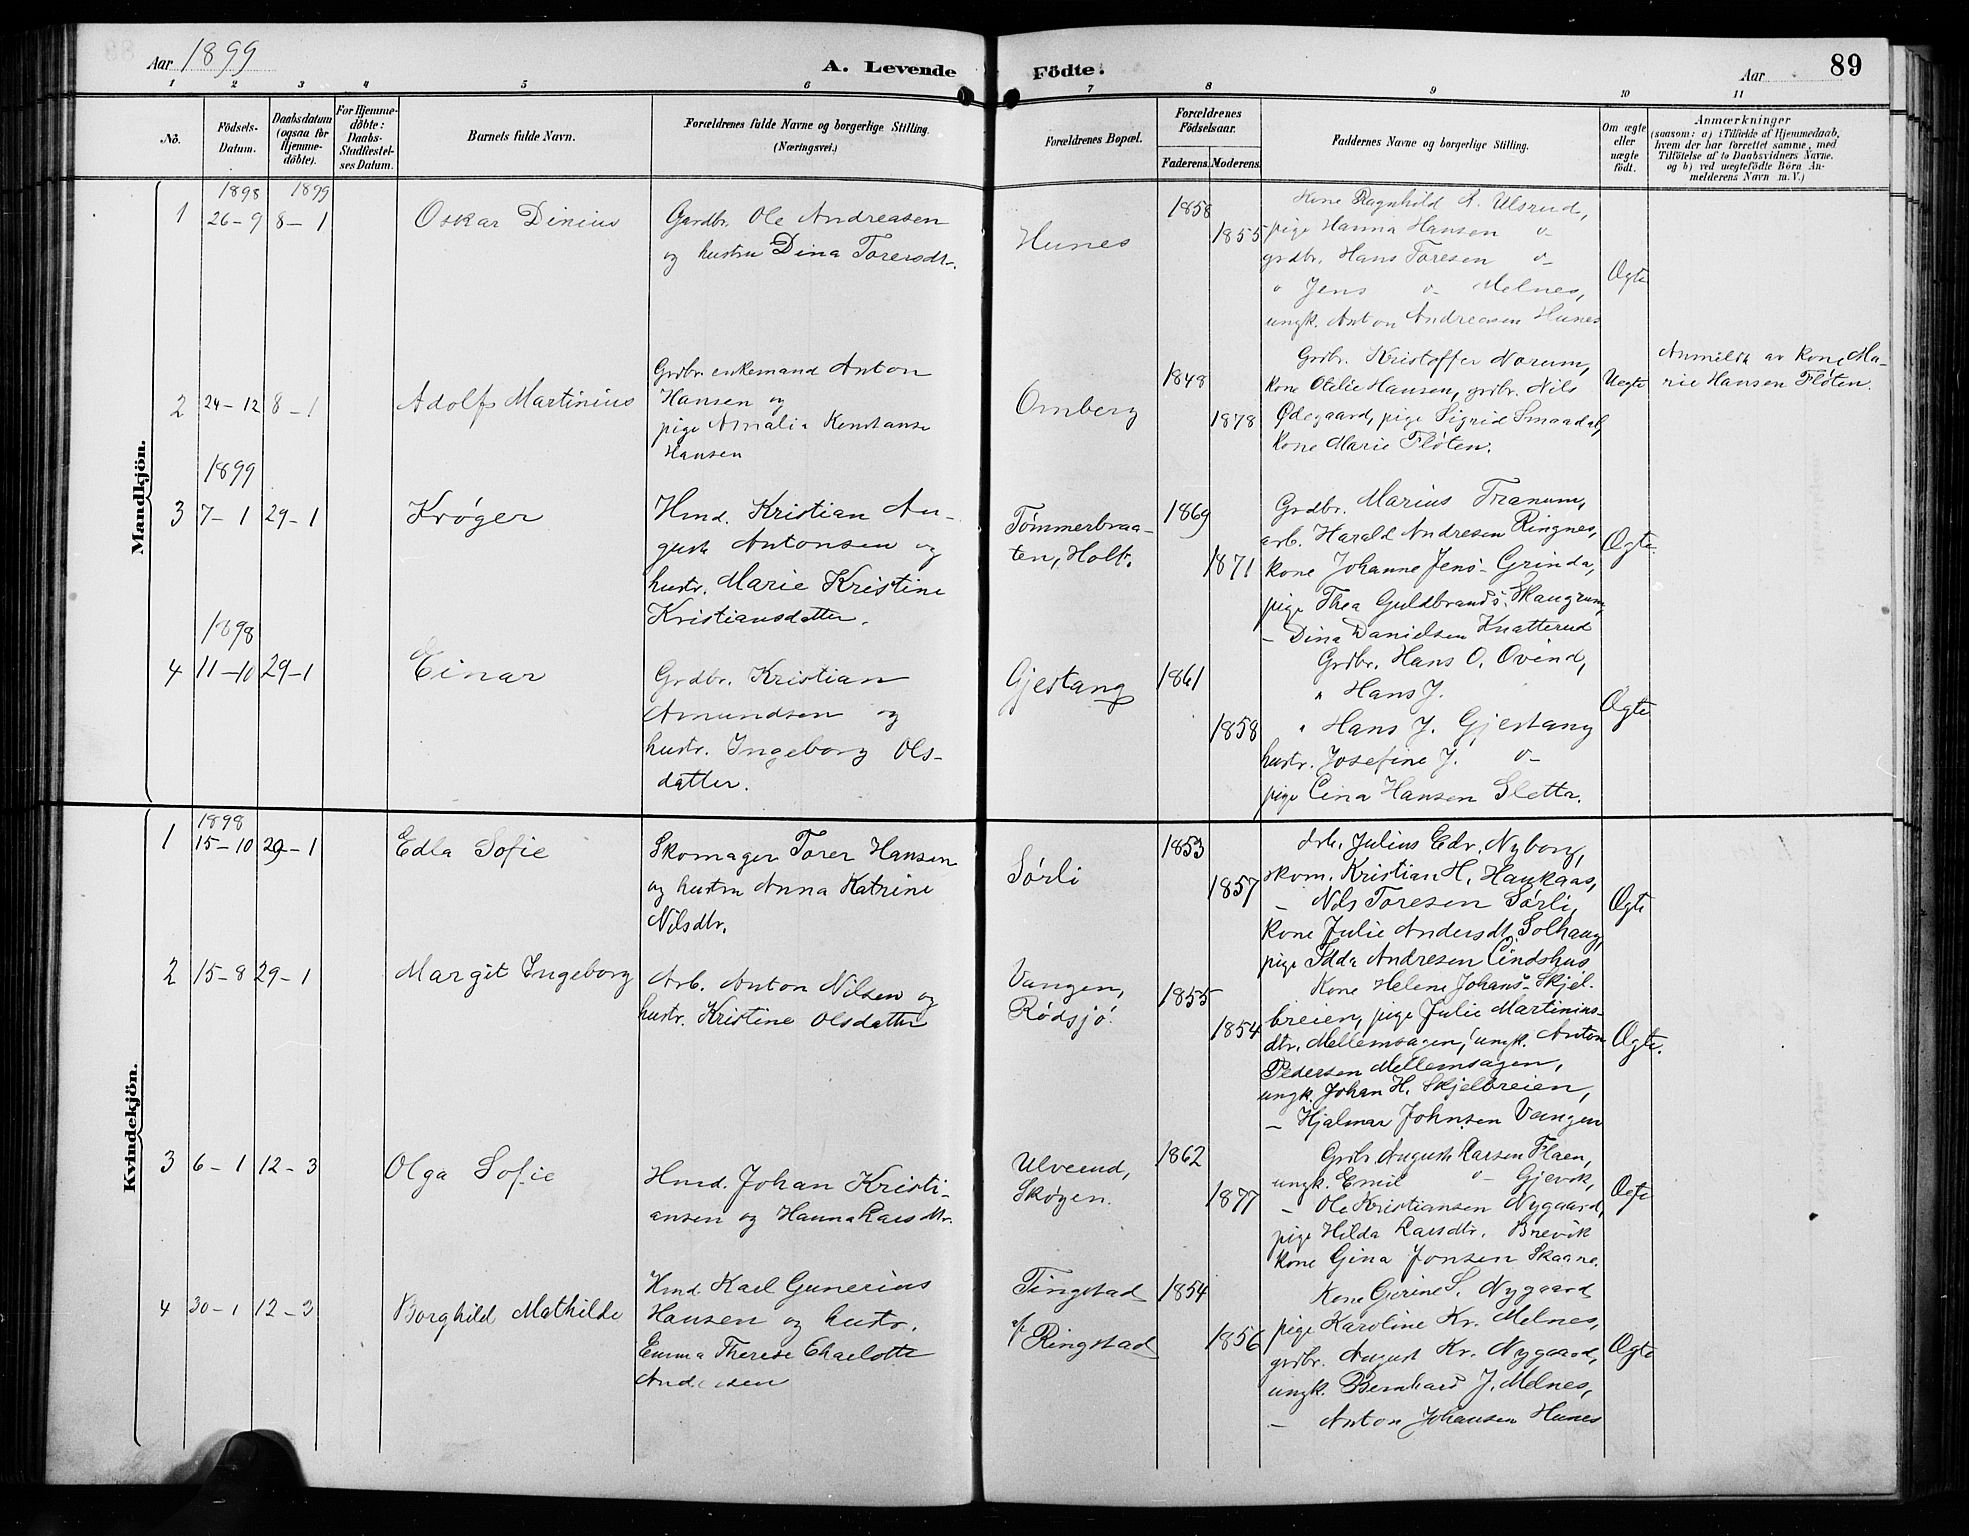 Aar 1899
A. Levende Födte.
Aar 89
1 2 3 4 5 6 7 8 9 10 11
No.
Födsels-Datum.
Daabsdatum (ogsaa for Hjemme-döbte).
For Hjemme-döbte: Daabs-Stadfæstel-ses Datum.
Barnets fulde Navn.
Forældrenes fulde Navne og borgerlige Stilling.
(Næringsvei.)
Forældrenes Bopæl.
Forældrenes Födselsaar.
Faderens. Moderens.
Faddernes Navne og borgerlige Stilling.
Om ægte eller uægte födt.
Anmærkninger
(saasom: a) i Tilfælde af Hjemmedaab,
hvem der har forrettet samme, med
Tilföielse af to Daabsvidners Navne.
og b) ved uægtefödte Börn An-
melderens Navn m. V.)
Mandkjön.
1898 1899
1 26-9 8-1
Oskar Dinius
Gardbr. Ole Andreasen
og hustru Dina Toresdt.
Hunes
1858
1855
Kone Ragnhild A. Ulsrud,
pige Hanna Hansen o-
grdbr. Hans Toresen o-
" Jens o- Melnes,
ungk. Anton Andreasen Hunes
Ægte
2 24-12 8-1
Adolf Martinius
Grdbr. enkemand Anton
Hansen og
pige Amalia Konstanse
Hansen
Ornberg
1848
1878
Grdb. Kristoffer Norum,
kone Otelie Hansen, grdbr. Nils
Ødegaard, pige Sigrid Smaadal,
kone Marie Fløten.
Uegte
Anmeldt av kone Ma-
rie Hansen Fløten.
1899
3 7-1 29-1
Krøger
Hmd. Kristian Au-
gust Antonsen og
hustr. Marie Kristine
Kristiansdatter.
Tømmerbraa-
ten, Holt.
1869
1871
Grdbr. Marius Tranum,
arb. Harald Andresen Ringnes,
kone Johanne Jens- Grinda,
pige Thea Guldbrands. Skaugrum,
- Dina Danielsen Knatterud
Ægte.
1898
4 11-10 29-1
Einar
Grdbr. Kristian
Amundsen og
hustr. Ingeborg Ols-
datter.
Gjestang
1861
1858
Grdbr. Hans O. Ovind,
" Hans J.
" Hans J. Gjestang
hustr. Josefine J. o-
pige Lina Hansen Sletta.
Ægte
Kvindekjön.
1898
1 15-10 29-1
Edla Sofie
Skomager Torer Hansen
og hustru Anna Katrine
Nilsdtr.
Sørli
1853
1857
Arb. Julius Edv. Nyborg,
skom. Kristian H. Haukaas,
- Nils Toresen Sørli,
kone Julie Andersdt. Solhaug,
pige Idda Andresen Lindshus
Ægte
2 15-8 29-1
Margit Ingeborg
Arb. Anton Nilsen og
hustr. Kristine Olsdatter
Vangen,
Rødsjø.
1855
1854
Kone Helene Johans- Skjel-
breien, pige Julie Martinius-
dtr. Mellemsagen, ungk. Anton
Pedersen Mellemsagen,
ungk. Johan H. Skjelbreien,
- Hjalmar Johnsen Vangen
Ægte.
3 6-1 12-3
Olga Sofie
Hmd. Johan Kristi-
ansen og Hanna Larsdtr.
Ulverud,
Skøyen.
1862
1877
Grdb. August Larsen Flaen,
ungk. Emil o- Gjevik,
- Ole Kristiansen Nygaard,
pige Hilda Larsdtr. Brevik
kone Gina Jonsen Skaane.
Ægte
4 30-1 12-3
Borghild Mathilde
Hmd Karl Gunerius
Hansen og hustr.
Emma Therese Charlotte
Andersen
Tingstad
u/ Ringstad
1854
1856
Kone Gurine S. Nygaard
pige Karoline Kr. Melnes,
grdbr. August Kr. Nygaard,
ungk. Bernhard J. Melnes,
- Anton Johansen Hunes
Ægte